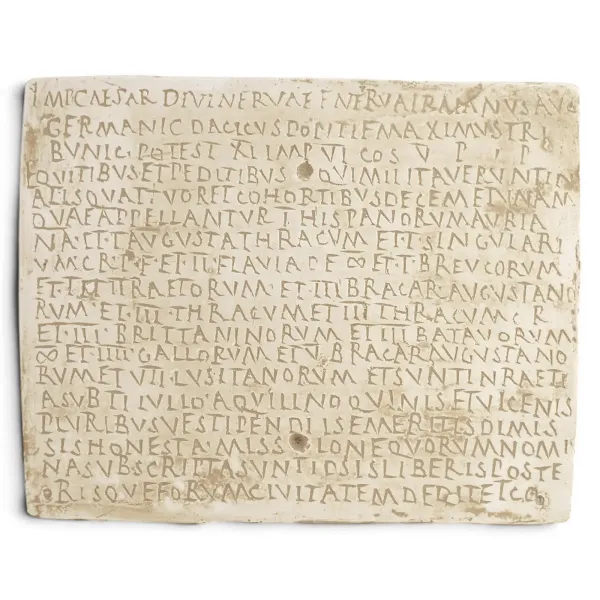 IMP CAESAR DIVI NERVAE F NERVA TRAIANVS AVG
GERMANIC DACICVS PONTIF MAXIMVS TRI
BVNIC POTEST XI IMP VI COS V P P
EQVITIBVS ET PEDITIBVS QVI MILITAVERVNT IN
ALIS QVATTVOR ET COHORTIBVS DECEM ET VNAM
QVAE APPELLANTVR I HISPANORVM AVRIA
NA ET I AVGVSTA THRACVM ET I SINGVLARI
VM C R P F ET II FLAVIA P F ∞ ET I BREVCORVM
ET I ET II RAETORVM ET III BRACARAVGVSTANO
RVM ET III THRACVM ET III THRACVM C R
ET III BRITTANNORVM ET IIII BATAVORVM
∞ ET IIII GALLORVM ET V BRACARAVGVSTANO
RVM ET VII LVSITANORVM ET SVNT IN RAETI
A SVB TI IVLIO AQVILINO QVINIS ET VICENIS
PLVRIBVSVE STIPENDIIS EMERITIS DIMIS
SIS HONESTA MISSIONE QVORVM NOMI
NA SVBSCRIPTA SVNT IPSIS LIBERIS POSTE
RISQVE EORVM CIVITATEM DEDIT ET CO